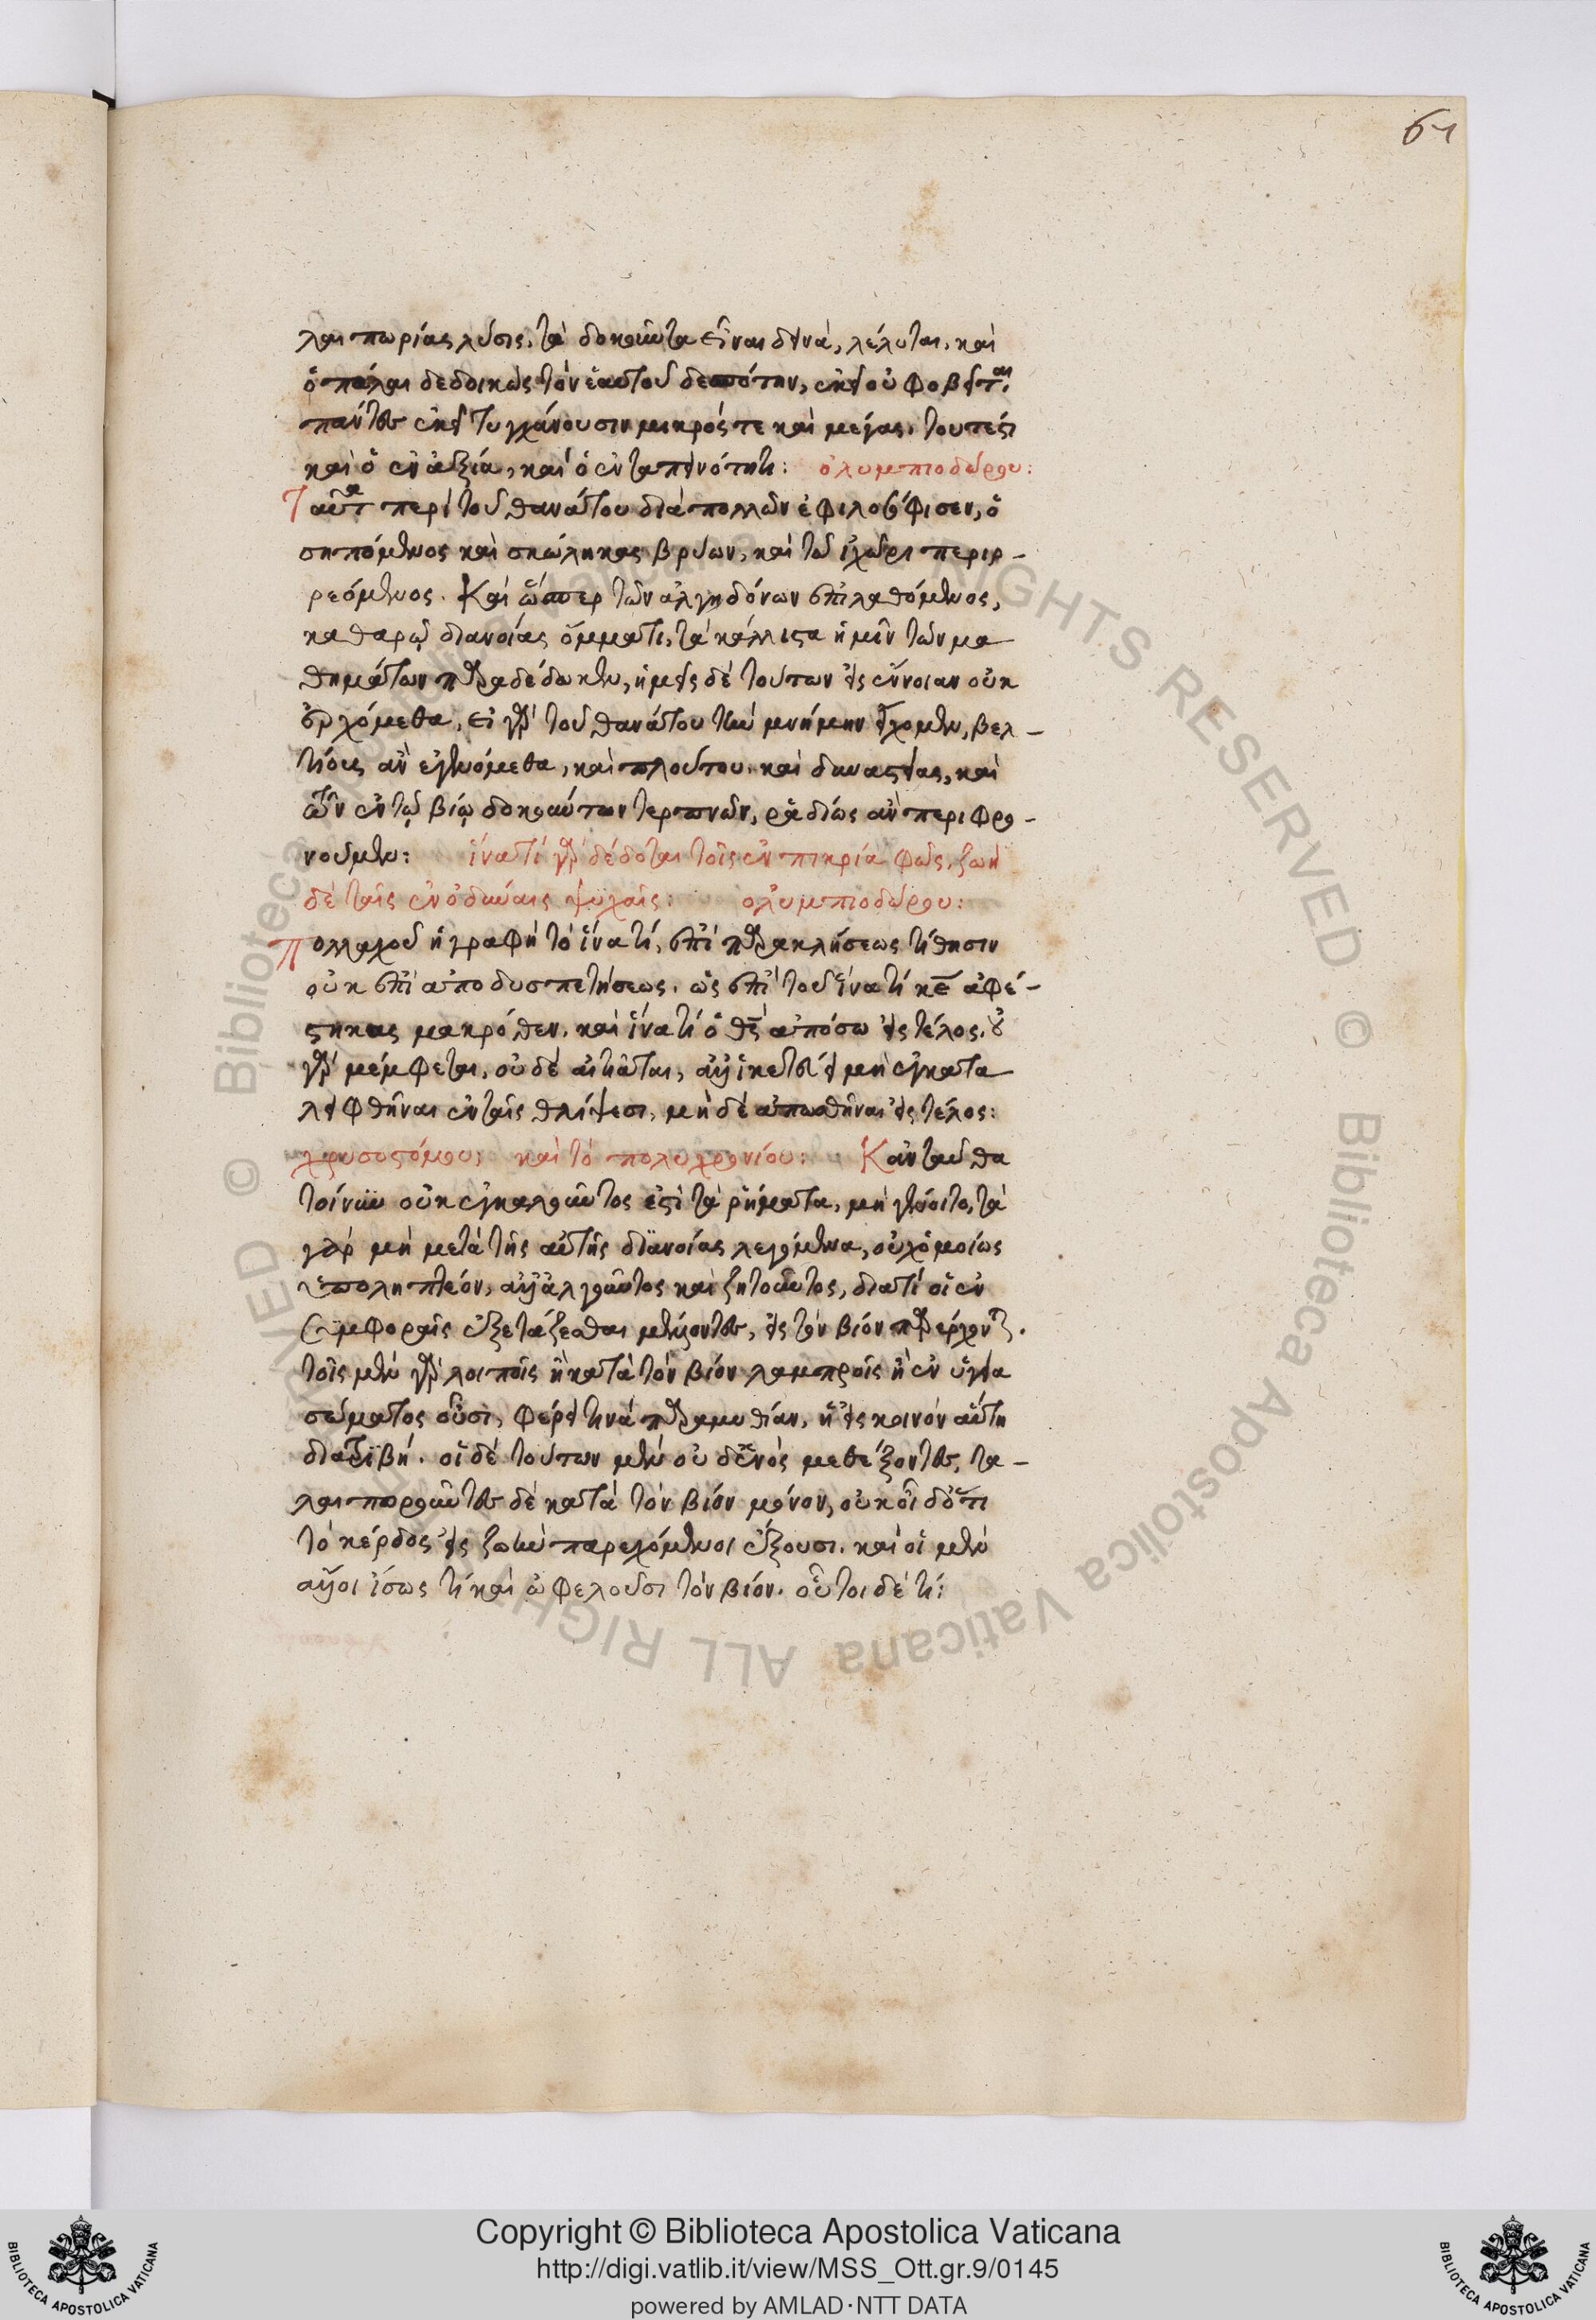 61
λαιπωρίας λύσις. τὰ δοκοῦντα εἶναι δεινὰ, λέλυται. καὶ
ὁ πάλαι δεδοικὼς τὸν ἑαυτοῦ δεσπότην, ἐκεῖ οὐ φοβεῖται.
πάντες ἐκεῖ τυγχάνουσιν μικρός τε καὶ μέγας. τουτέστι
καὶ ὁ ἐν ἀξία, καὶ ὁ ἐν ταπεινότητι: ὀλυμπιοδώρου:
Ταῦτα περὶ τοῦ θανάτου διὰ πολλῶν ἐφιλοσόφισεν, ὁ
σηπόμενος καὶ σκώληκας βρύων, καὶ τῶ ἰχῶρι περιρ-
ρεόμενος. Καὶ ὥσπερ τῶν ἀλγηδόνων ἐπιλαθόμενος,
καθαρῷ διανοίας ὄμματι, τὰ κάλλιστα ἡμῖν τῶν μα
θημάτων παραδέδωκεν, ἡμεῖς δὲ τούτων εἰς ἔννοιαν οὐκ
ἐρχόμεθα. εἰ γὰρ τοῦ θανάτου τὴν μνήμην εἴχομεν, βελ-
τίους ἂν ἐγενόμεθα, καὶ πλούτου. καὶ δυναστείας, καὶ
τῶν ἐν τῷ βίῳ δοκούντων τερπνῶν, ῥᾳδίως ἂν περιφρο-
νοῦμεν: ἱνατί γὰρ δέδοται τοῖς ἐν πικρία φῶς, ζωὴ
δὲ ταῖς ἐν ὀδύναις ψυχαῖς: ὀλυμπιοδώρου:
Πολλαχοῦ ἡ γραφὴ τὸ ἵνα τί, ἐπὶ παρακλήσεως τίθησιν
οὐκ ἐπὶ ἀποδυσπετήσεως. ὡς ἐπὶ τοῦ ἵνα τί κε ἀφέ-
στηκας μακρόθεν. καὶ ἵνα τί ὁ θς ἀπόσω εἰς τέλος. οὐ
γὰρ μέμφεται, οὐδὲ αἰτιᾶται, ἀλλ' ἱκετεύει μὴ ἐγκατα
λειφθῆναι ἐν ταῖς θλίψεσι, μὴ δὲ ἀπωσθῆναι εἰς τέλος:
χρυσοστόμου: καὶ τὸ πολυχρονίου: Κἀνταῦθα
τοίνυν οὐκ ἐγκαλοῦντος ἐστὶ τὰ ῥήματα, μὴ γένοιτο, τὰ
γὰρ μὴ μετὰ τῆς αὐτῆς διανοίας λεγόμενα, οὐχ ὁμοίως
ὑποληπτέον, ἀλλ' ἀλγοῦντος καὶ ζητοῦντος, διατί οἱ ἐν
συμφοραῖς ἐξετάζεσθαι μέλλοντες, εἰς τὸν βίον παρέρχονται.
τοῖς μὲν γὰρ λοιποῖς ἢ κατὰ τὸν βίον λαμπροῖς ἢ ἐν ὑγεία
σώματος οὖσι, φέρει τινὰ παραμυθίαν, ἡ εἰς κοινὸν αὕτη
διατριβή. οἱ δὲ τούτων μὲν οὐδενὸς μεθέξοντες, τα-
λαιπωροῦντες δὲ κατὰ τὸν βίον μόνον, οὐκ οἶδ' ὅτι
τὸ κέρδος εἰς ζωὴν παρερχόμενοι ἕξουσι. καὶ οἱ μὲν
ἄλλοι ἴσως τί καὶ ὠφελοῦσι τὸν βίον. οὗτοι δὲ τί:
Copyright © Biblioteca Apostolica Vaticana
http://digi.vatlib.it/view/MSS_Ott.gr.9/0145
powered by AMLAD·NTT DATA